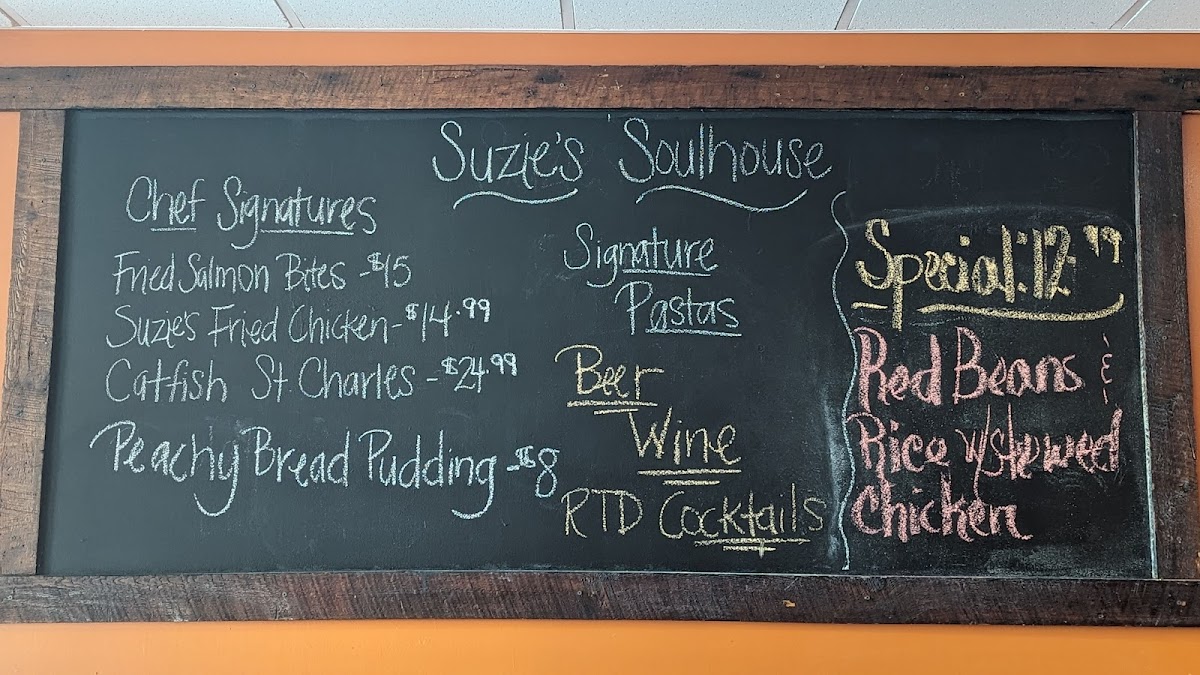 Suzie's Soulhouse
Chef Signatures
Fried Salmon Bites - $15
Suzie's Fried Chicken - $14.99
Catfish St. Charles - $24.99
Peachy Bread Pudding - $8
Signature
Pastas
Beer
Wine
RTD Cocktails
Special: 12.99
Red Beans &
Rice w/stewed
Chicken